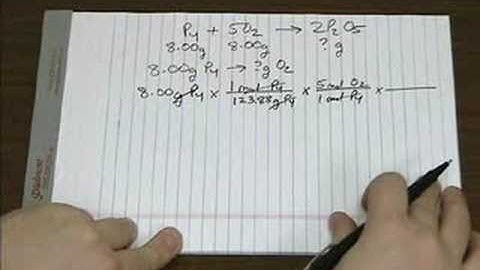 P4 + 5O2 → 2P2O5
8.00g 8.00g ? g
8.00g P4 → ?g O2
8.00g P4 × 1 mol P4 / 123.88g P4 × 5 mol O2 / 1 mol P4 ×